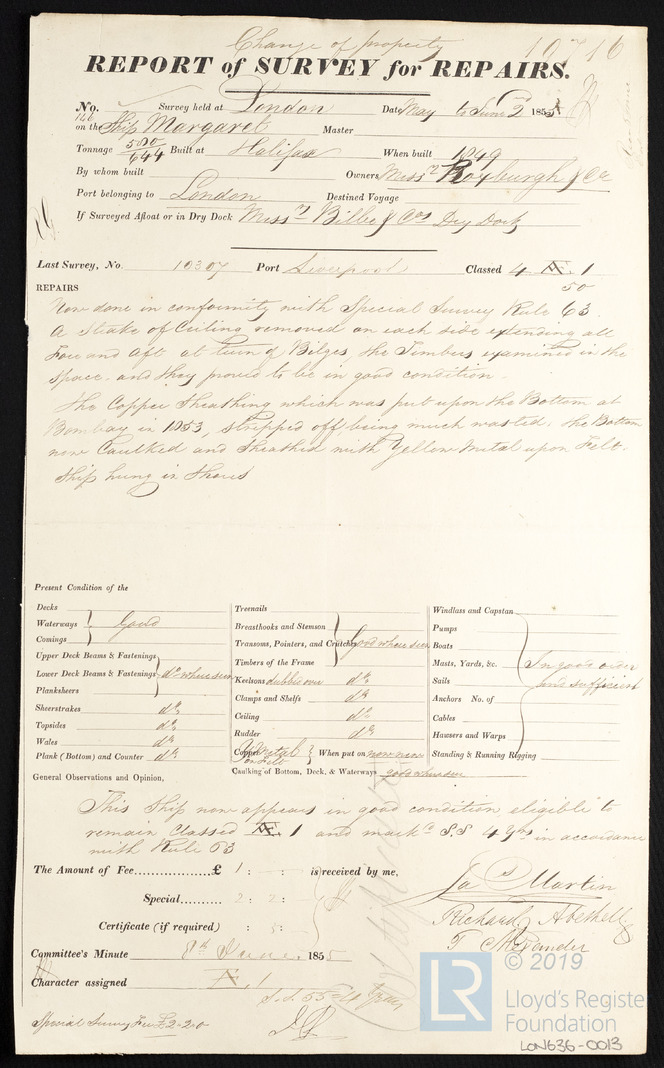 Change of property 10716
REPORT of SURVEY for REPAIRS.
No. Survey held at London Date May to June 2 1855
146
on the Ship Margaret Master
Tonnage 500/644 Built at Halifax When built 1849
By whom built Owners Messrs Roxburgh & Co
Port belonging to London Destined Voyage
If Surveyed Afloat or in Dry Dock Messrs Bilbe & Cos Dry Dock
Last Survey, No. 10307 Port Liverpool Classed 4 Æ. 1
50
REPAIRS
Now done in conformity with Special Survey Rule 63.
A Strake of Ceiling removed on each side extending all
Fore and Aft at turn of Bilges the Timbers examined in the
space and they proved to be in good condition.
The Copper Sheathing which was put upon the Bottom at
Bombay in 1853, stripped off being much wasted, the Bottom
now Caulked and Sheathed with Yellow Metal upon Felt.
Ship hung in Shores
Present Condition of the
Decks
Waterways } Good
Comings
Upper Deck Beams & Fastenings
Lower Deck Beams & Fastenings } do where seen
Planksheers
Sheerstrakes do
Topsides do
Wales do
Plank (Bottom) and Counter do
Treenails
Breasthooks and Stemson
Transoms, Pointers, and Crutches } Good where seen
Timbers of the Frame
Keelsons do
Clamps and Shelfs do
Ceiling do
Rudder do
Copper Y Metal on Felt } When put on now new
Caulking of Bottom, Deck, & Waterways good where seen
Windlass and Capstan
Pumps
Boats
Masts, Yards, &c. In good order
Sails and sufficient
Anchors No. of
Cables
Hawsers and Warps
Standing & Running Rigging
General Observations and Opinion,
This Ship now appears in good condition eligible to
remain Classed Æ. 1 and markd S.S 4 Yrs in accordance
with Rule 63
The Amount of Fee £ 1 : - : - is received by me,
Special 2 : 2 : - Jas Martin
Certificate (if required) : 5 : Richard Abethell
Committee's Minute 8th June 1855
Character assigned Æ. 1
S.S. 55-4 Years
Special Survey Fee £2-2-0
© 2019
LR
Lloyd's Register
Foundation
LON636-0013